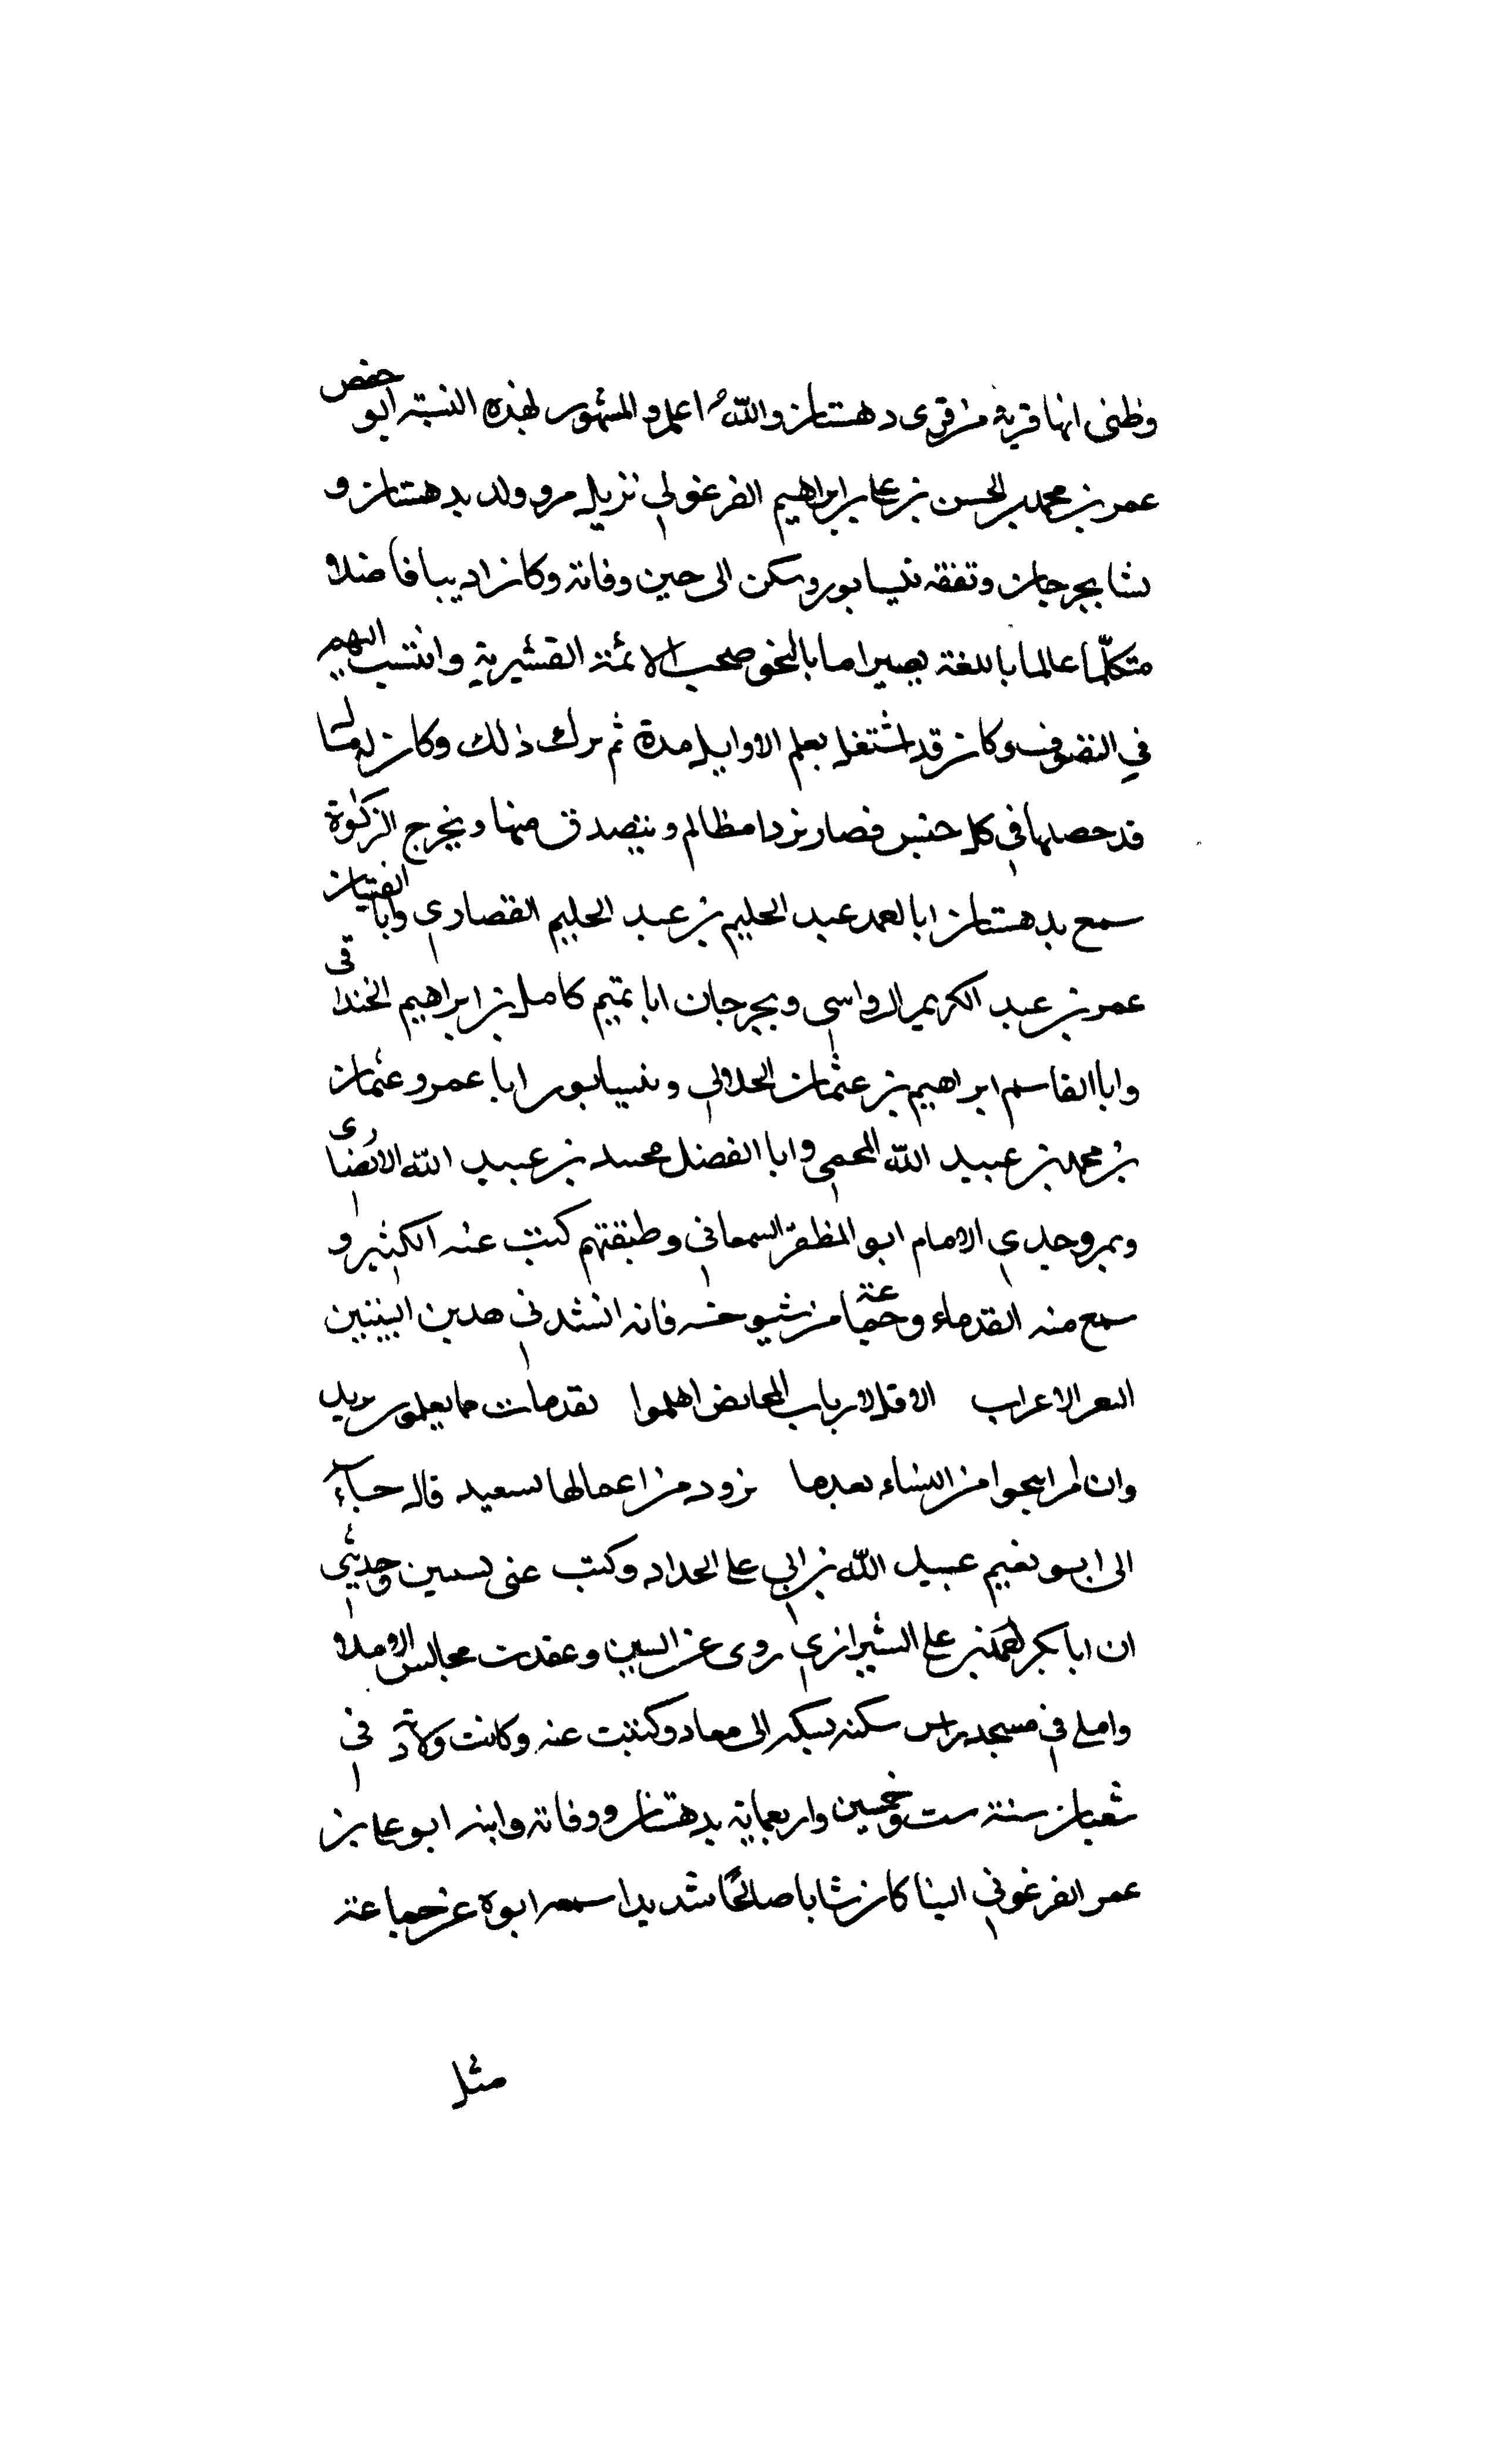 وظنى انها قرية من قرى دهستان والله اعلم والمشهور لهذه النسبة ابو حفص
عمر بن محمد بن الحسن بن على بن ابراهيم الفرغولي نزيل مرو ولد بدهستان و
نشا بجرجان وتفقه بنيسابور وسكن الى حين وفاته وكان اديبا فاضلا
متكلّما عالما باللغة بصيرا ما بالنحو صحب الائمة القشيرية وانتسب اليهم
في التصوف وكان قد اشتغل بعلم الاوايل مدة ثم ترك ذلك وكان له
قد حصلها في كل جنس فصار يرد مظالم ويتصدق منها ويخرج الزكوة
سمع بدهستان ابا عبد الحليم بن عبد الحليم القصاري وابا الفتيان
عمر بن عبد الكريم الرواسي وبجرجان ابا تميم كامل بن ابراهيم الخندقى
وابا القاسم ابراهيم بن عثمان الخلالي وبنيسابور ابا عمرو عثمان
بن محمد بن عبيد الله المحمي وابا الفضل محمد بن عبيد الله الانصارى
وبمرو جدي الامام ابو المظفر السمعاني وطبقتهم كتبت عنه الكثير و
سمع منه القدماء وجماعة من شيوخه فانه انشدني هذين البيتين
الاعراب الا قل لارباب اهلموا بقدمات
وان لم من النساء بعدما تزود من اعمالها بسعيد قال جاء
الى ابو نعيم عبيد الله بن ابي على الحداد وكتب عنى وحديثي
ان ابا بكر احمد بن على الشيرازي روى عن وعقدت مجالس الاملا
واملى في مسجد براس سكته الى وكتبت عنه وكانت ولادته في
شعبان سنة ست وخمسين واربعماية بدهستان ووفاته وابنه ابو على بن
عمر الفرغوني ايضا كان شابا صالحا شديدا سمعه ابوه عن جماعة
مثل